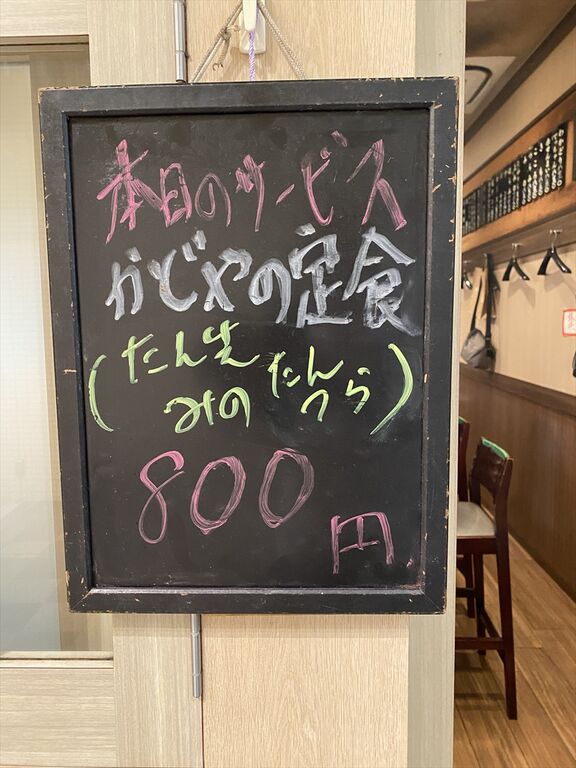 本日のサービス
かどやの定食
(たん生 たん
みの つら)
800
円